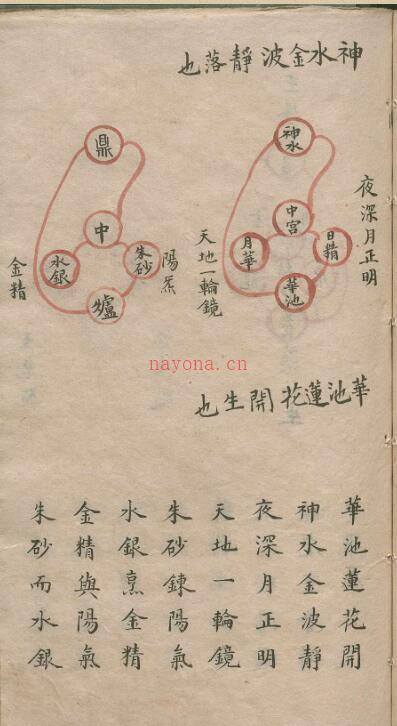 神水金波靜落也
神水
中宮
月華
日精
華池
夜深月正明
天地一輪鏡
華池蓮花開生也
鼎
中
水銀
朱砂
爐
陽炁
金精
nayona.cn
華池蓮花開
神水金波靜
夜深月正明
天地一輪鏡
朱砂鍊陽氣
水銀烹金精
金精與陽氣
朱砂而水銀